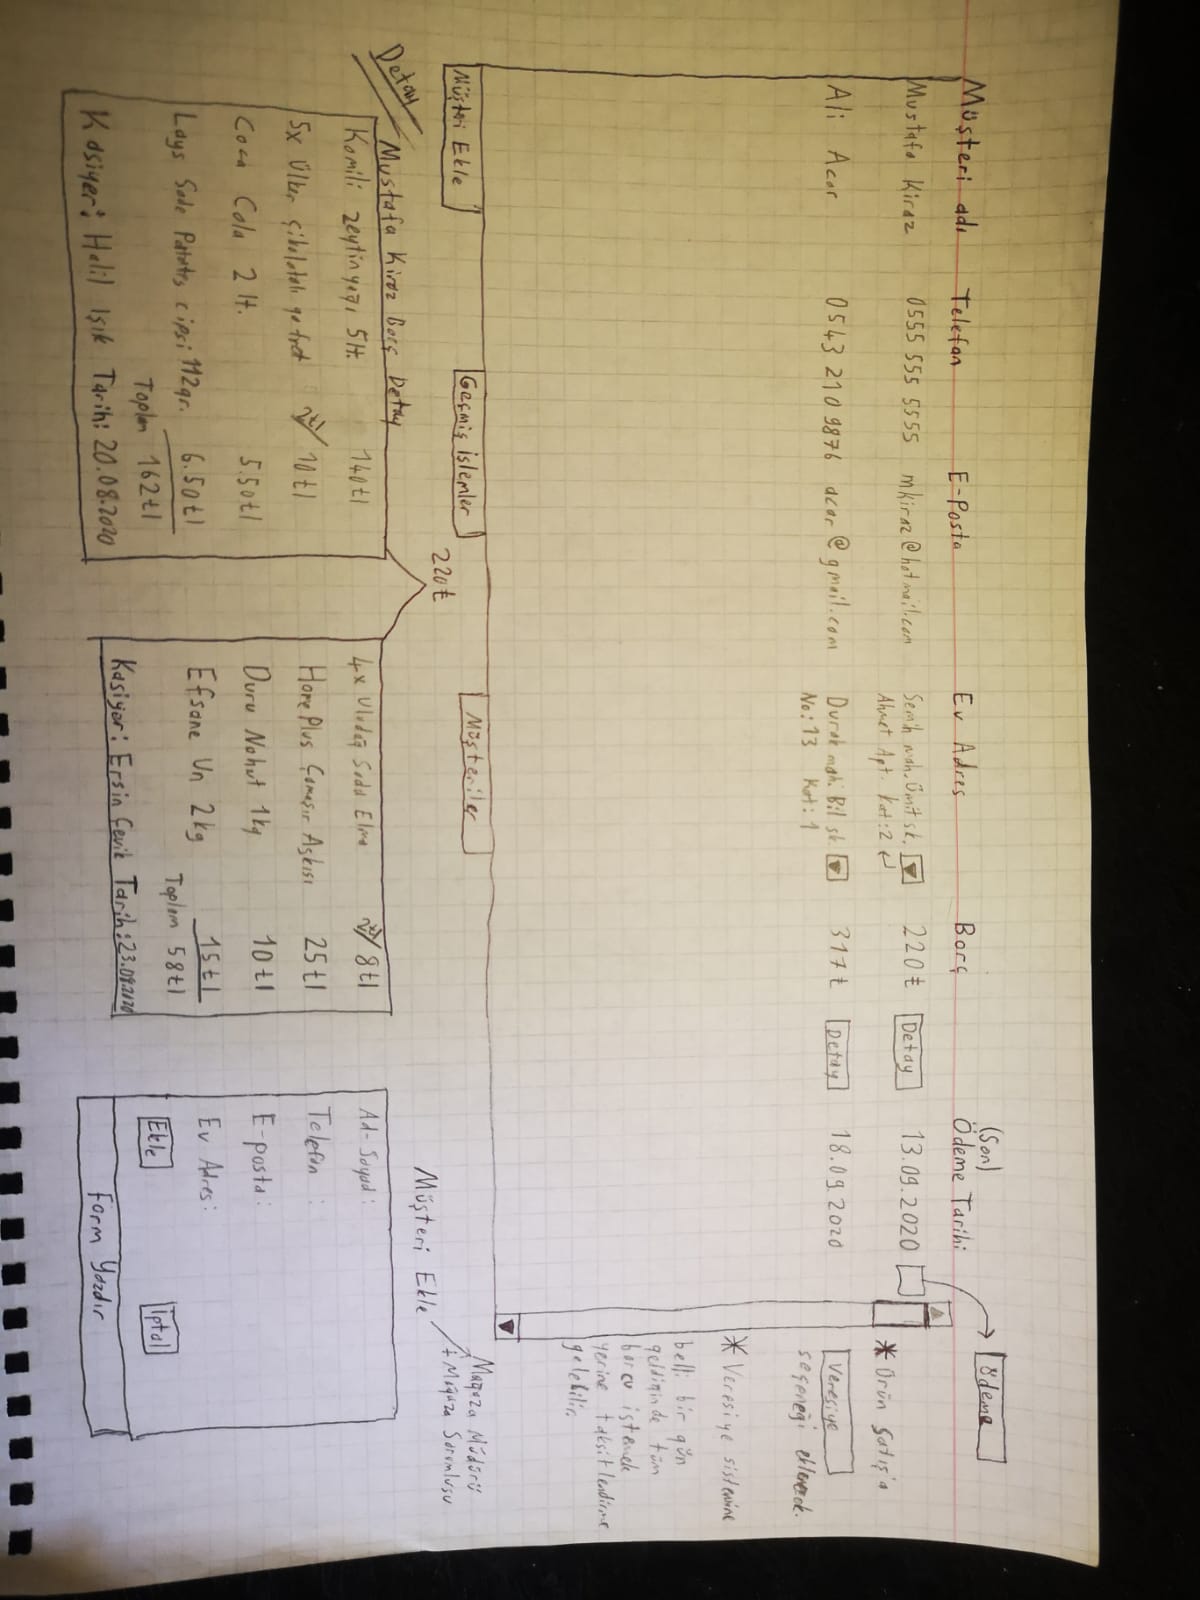 Müşteri adı Telefon E-Posta Ev Adres Borç (Son) Ödeme Tarihi Ödeme
Mustafa Kiraz 0555 555 5555 mkiraz@hotmail.com Semih mah. Ümit sk. 220 ₺ Detay 13.09.2020
Ahmet Apt. Kat:2
Ali Acar 0543 210 9876 acar@gmail.com Durak mah. Bil sk. 317 ₺ Detay 18.09.2020
No:13 Kat:1
* Ürün Satış'a
Veresiye
seçeneği eklenecek.
* Veresiye sistemine
belli bir gün
geldiğinde tüm
borcu istemek
yerine taksitlendirme
gelebilir.
Müşteri Ekle Geçmiş İşlemler Müşteriler
Mağaza Müdürü
+ Mağaza Sorumlusu
220₺
Detay
Mustafa Kiraz Borç Detay
Komili zeytinyağı 5lt. 140tl
5x Ülker çikolatalı gofret 2tl/ 10tl
Coca Cola 2 lt. 5.50tl
Lays Sade Patates cipsi 112gr. 6.50tl
Toplam 162tl
Kasiyer: Halil Işık Tarih: 20.08.2020
4x Uludağ Soda Elma 2tl/ 8tl
Home Plus Çamaşır Askısı 25tl
Duru Nohut 1kg 10tl
Efsane Un 2kg 15tl
Toplam 58tl
Kasiyer: Ersin Çevik Tarih:23.08.2020
Müşteri Ekle
Ad-Soyad:
Telefon :
E-posta:
Ev Adres:
Ekle İptal
Form Yazdır